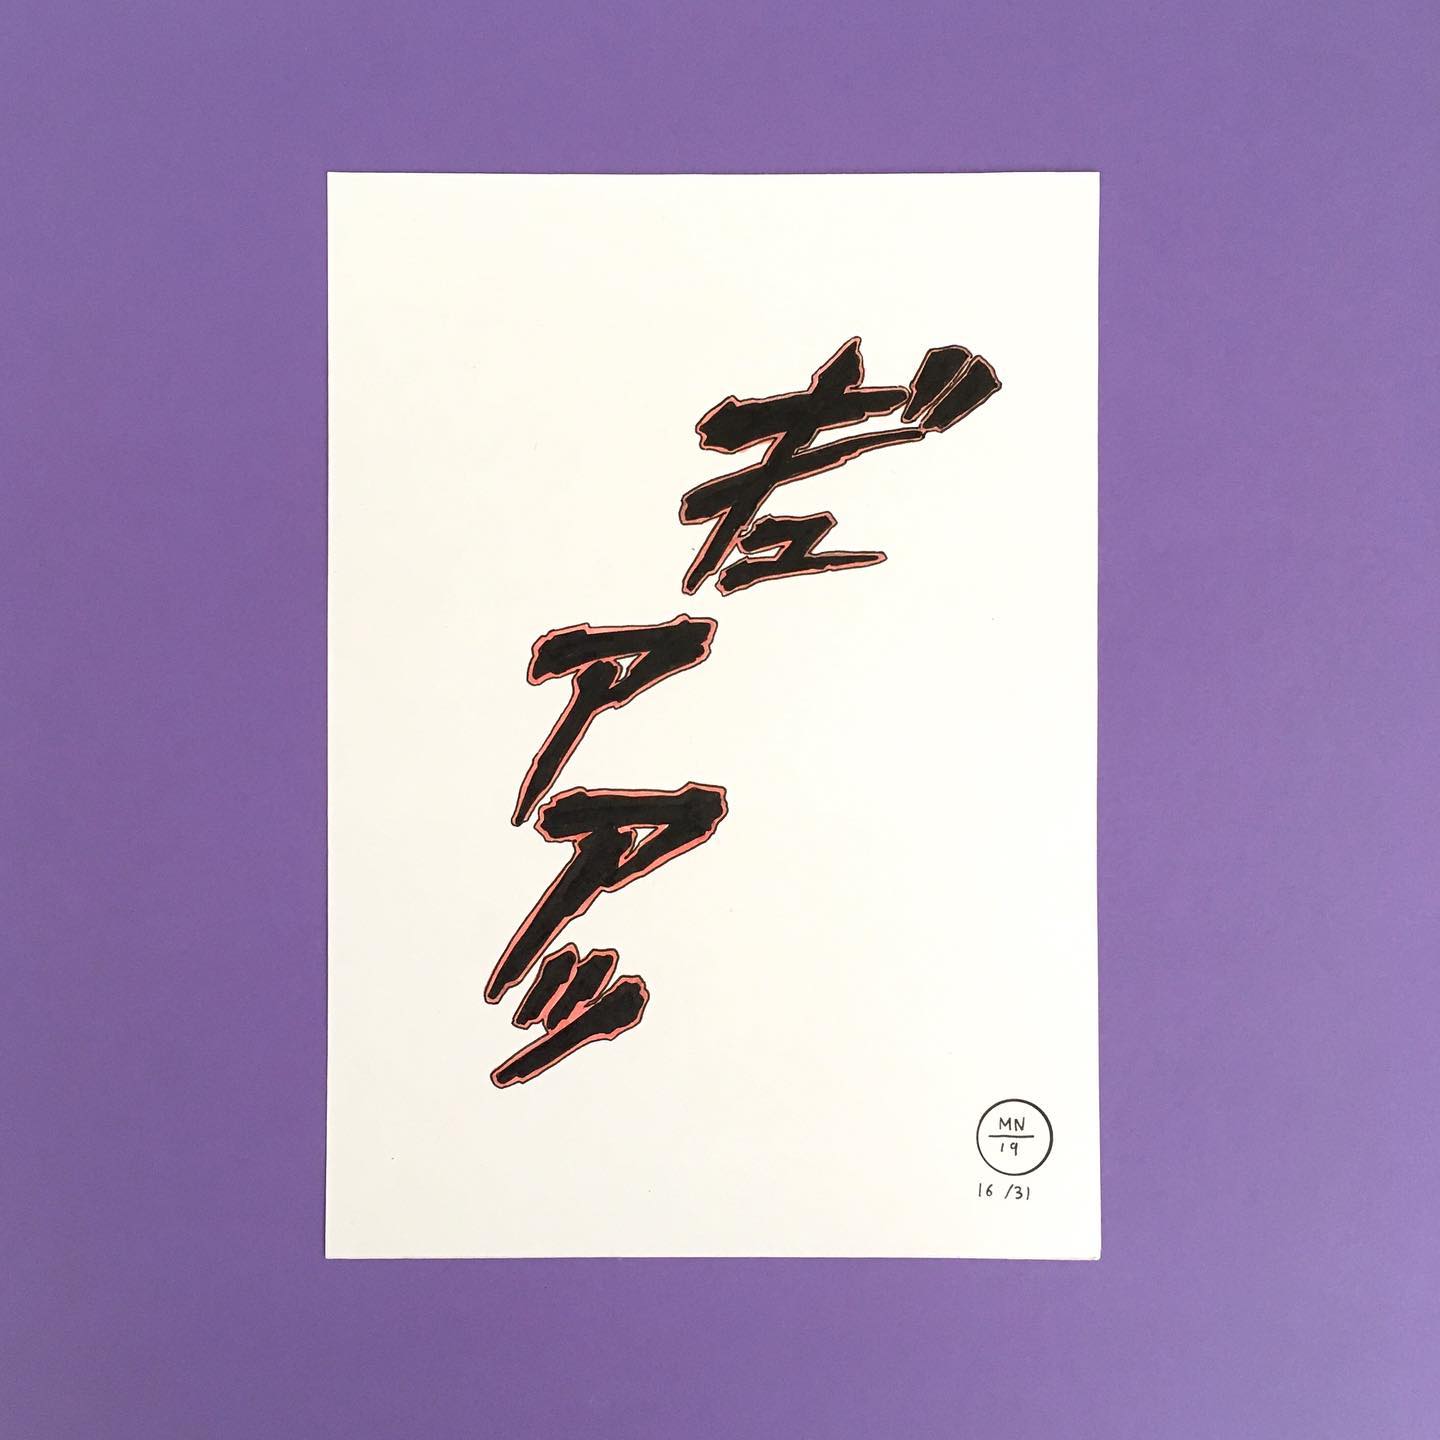 ギュアアッ
MN
19
16/31